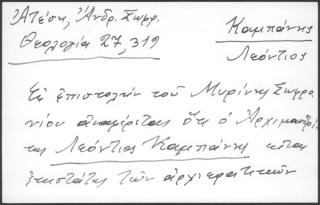 Ἀτέση, Ἀνδρ. Σωφρ.
Θεολογία 27, 319
Καμπάνης
Λεόντιος
Ἐξ ἐπιστολῶν τοῦ Μυρίνης Σωφρο
νίου ἀναφέρεται ὅτι ὁ Ἀρχιμανδρί
της Λεόντιος Καμπάνης εἶναι
ἐκ τῶν ἀρχιερατικῶν